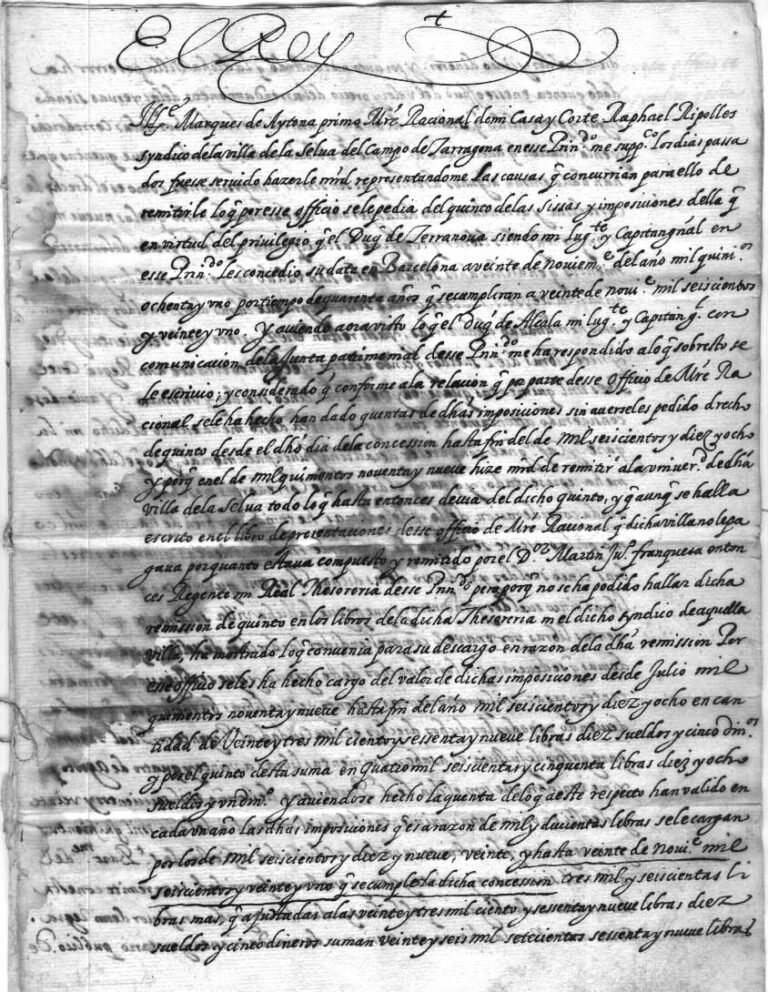 El Rey
Illᵉ. Marques de Aytona primo Mrē Racional demi Casa y Corte Raphael Ripolles
syndico dela villa de la Selua del Campo de Tarragena en esse Prinᵈᵒ. me suppᶜᵒ. los dias passa
dos fuesse seruido hazerle mrd representandome las causas q̄ concurrian para ello de
remitirle loq̄ por esse officio se le pedia del quinto de las sissas y imposiciones della q̄
en virtud del priuilegio q̄ el Duq̄ de Terranoua siendo mi lugᵗᵉ y Capitan gñal en
esse Prinᵈᵒ les concedio su data en Barcelona a veinte de Nouiemᵉ del año mil quiniᵒˢ
ochenta y vno por tiempo de quarenta años q̄ se cumpliran a veinte de nouiᵉ mil seiscientos
y veinte y vno. Y auiendo aora visto loq̄ el duq̄ de Alcala mi lugᵗᵉ y Capitan gˡ. con
comunicacion dela Junta patrimonial desse Prinᵈᵒ me ha respondido a loq̄ sobresto se
le escriuio; y considerado q̄ conforme a la relacion q̄ por parte desse Officio de Mrē Ra
cional se le ha hecho han dado quentas de dhas imposiciones sin auerseles pedido drecho
de quinto desde el dho dia dela concession hasta fin del de mil seiscientos y diez y ocho
y porq̄ en el de mil quinientos nouenta y nueue hize mrd de remitir a la vniuerᵈ. de dha
villa dela Selua todo loq̄ hasta entonces deuia del dicho quinto, y q̄ aunq̄ se halla
escrito en el libro de presentaciones desse officio de Mrē Racional q̄ dicha villa no le pa
gaua por quanto estaua compuesto y remitido por el D.ᵒʳ Martin Juº. franquesa enton
ces Regente mi Real Thesoreria desse Prinᵈᵒ pero porq̄ no se ha podido hallar dicha
remission de quinto en los libros de la dicha Thesoreria ni el dicho syndico de aquella
villa, ha mostrado loq̄ conuenia para su descargo en razon dela dha remission Por
esse officio seles ha hecho cargo del valor de dichas imposiciones desde Julio mil
quinientos nouenta y nueue hasta fin del año mil seiscientos y diez y ocho en can
tidad de Veinte y tres mil ciento y sessenta y nueue libras diez sueldos y cinco dinᵒˢ
y por el quinto desta suma en Quatro mil seiscientas y cinquenta libras diez y ocho
sueldos y vn dinᵒ. y auiendose hecho la quenta de loq̄ a este respecto han valido en
cada vn año las dhas imposiciones q̄ es a razon de mil y ducientas libras se le cargan
por los de mil seiscientos y diez y nueue, veinte, y hasta veinte de Nouiᵉ mil
seiscientos y veinte y vno q̄ se cumple la dicha concession tres mil y seiscientas li
bras mas, q̄ ajustadas a las veinte y tres mil ciento y sessenta y nueue libras diez
sueldos y cinco dineros suman veinte y seis mil setecientas sessenta y nueue libras